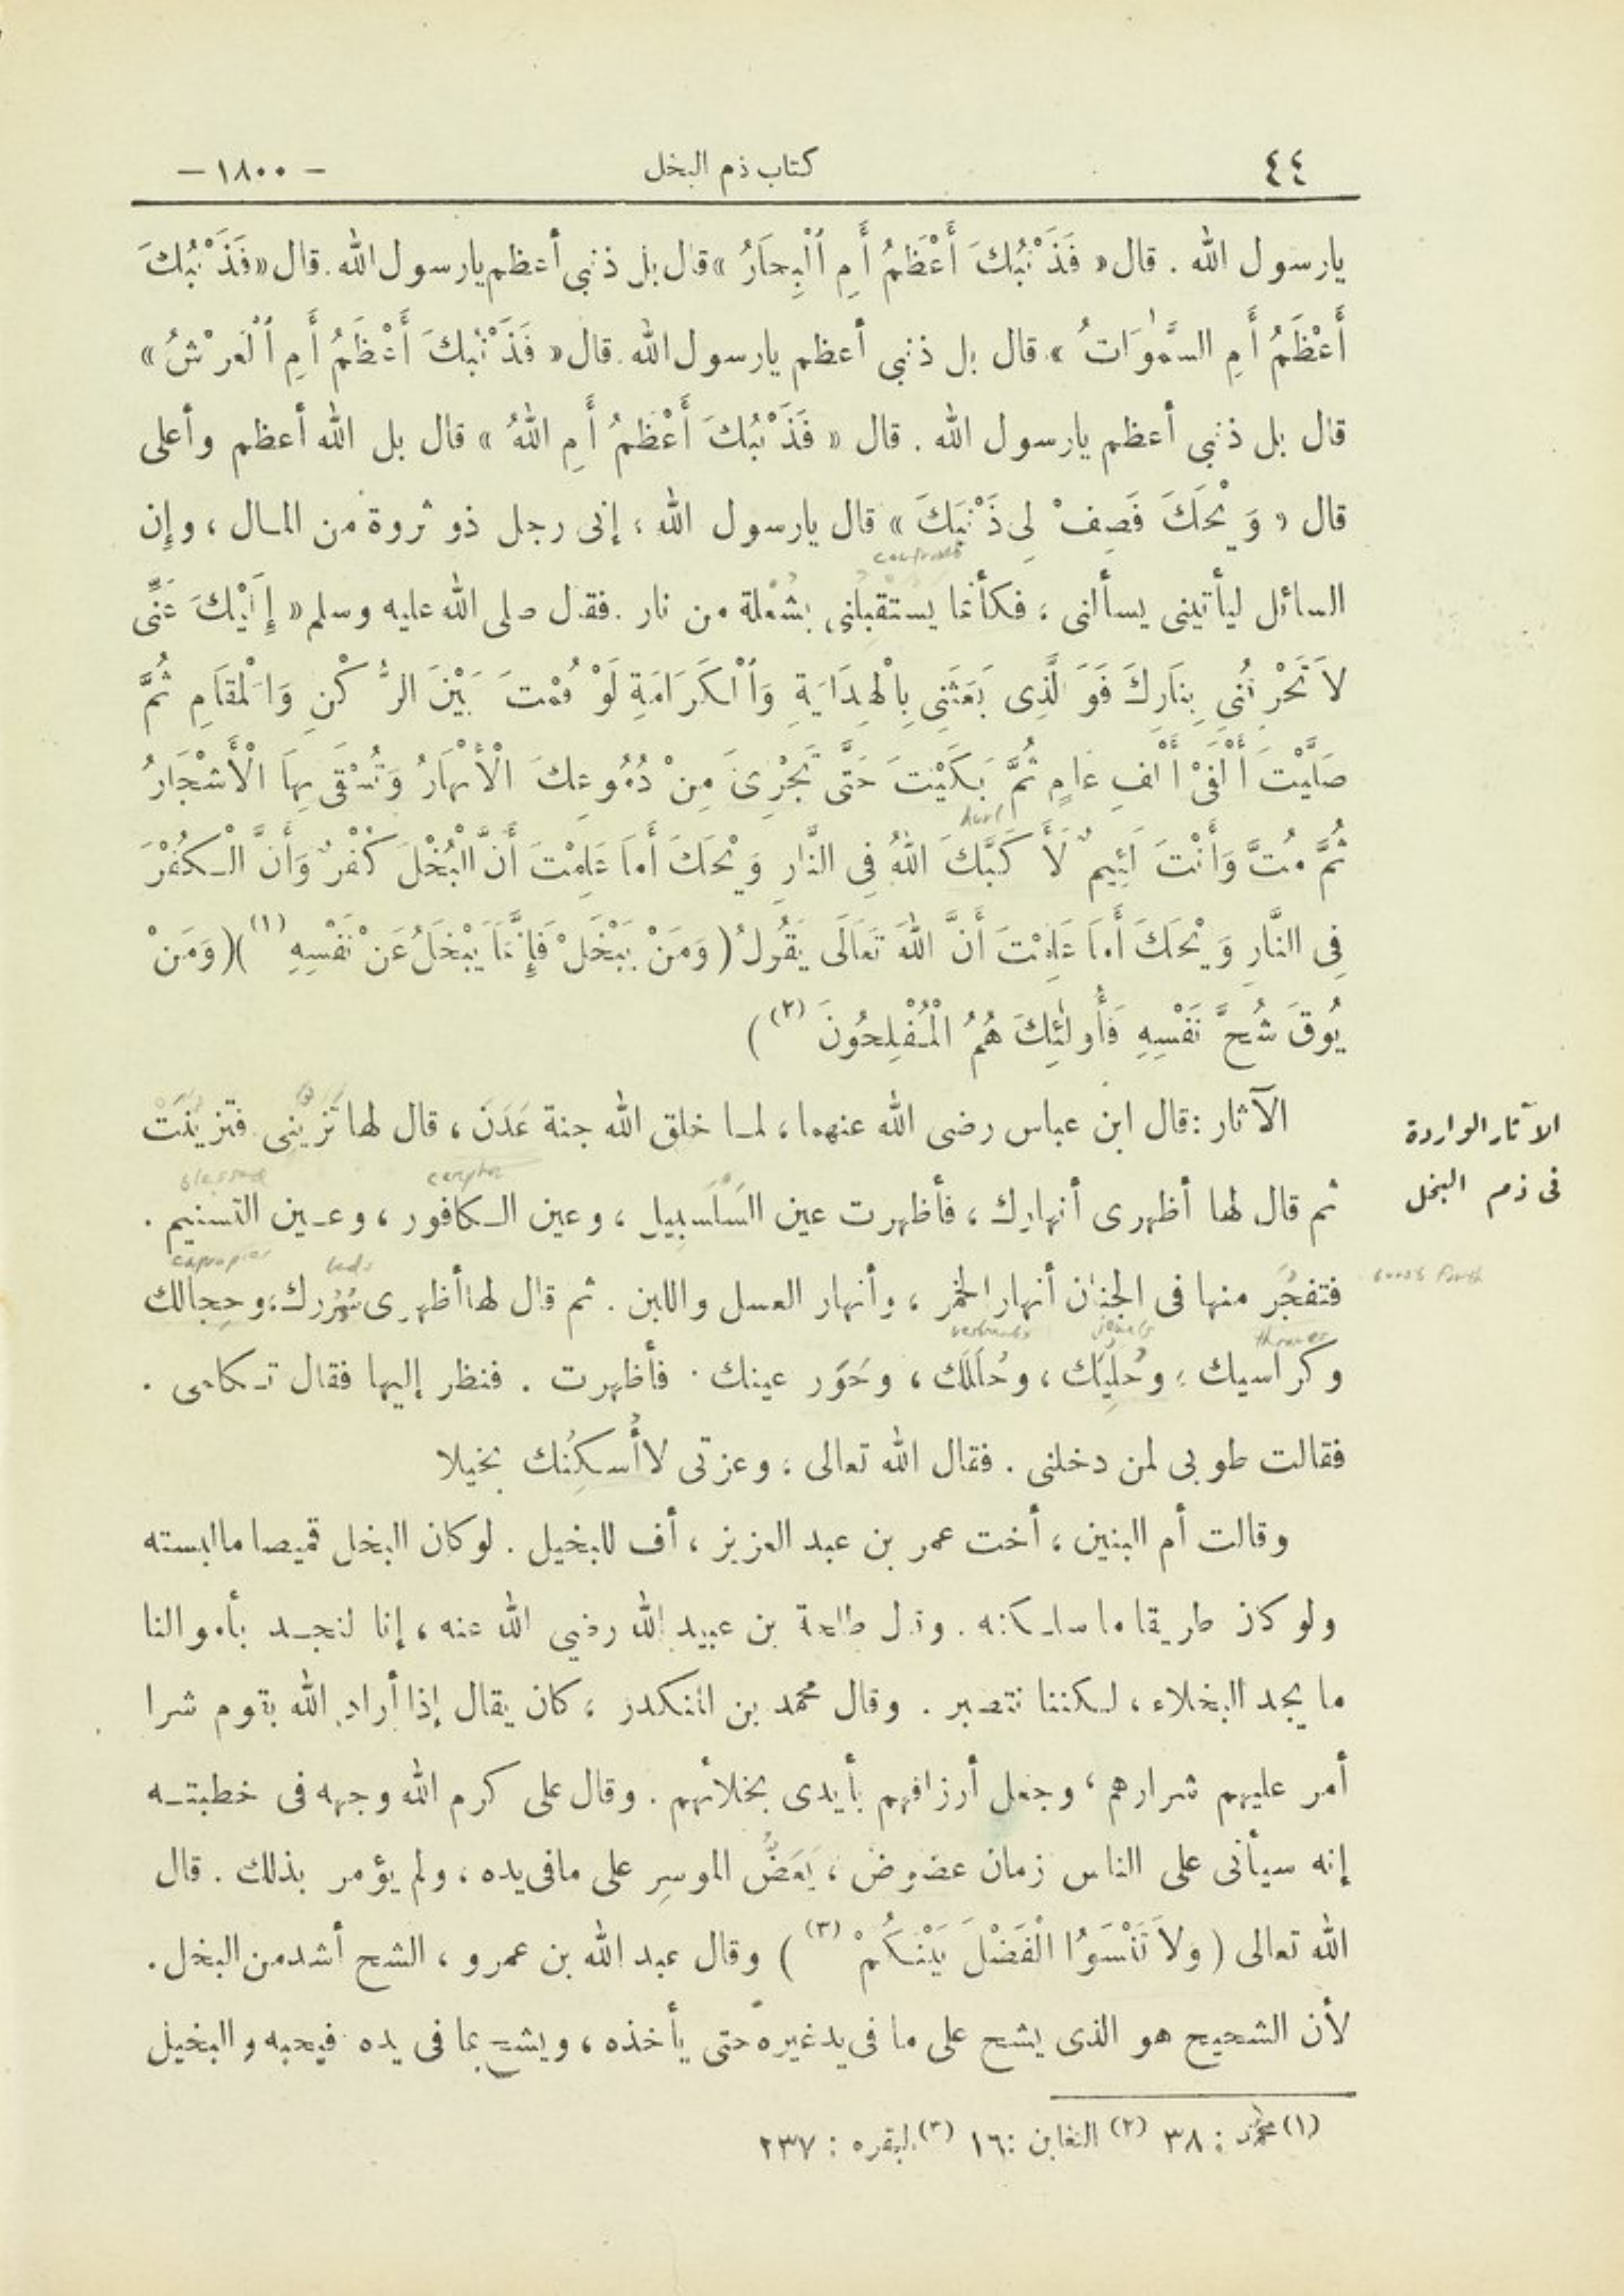 ٤٤ كتاب ذم البخل — ١٨٠٠ —
يارسول الله . قال « فَذَنْبُكَ أَعْظَمُ أَمِ ٱلْبِحَارُ » قال بل ذنبى أعظم يارسول الله . قال « فَذَنْبُكَ
أَعْظَمُ أَمِ السَّمٰوَاتُ » قال بل ذنبى أعظم يارسول الله . قال « فَذَنْبُكَ أَعْظَمُ أَمِ ٱلْعَرْشُ »
قال بل ذنبى أعظم يارسول الله . قال « فَذَنْبُكَ أَعْظَمُ أَمِ اللهُ » قال بل الله أعظم وأعلى
قال « وَيْحَكَ فَصِفْ لِى ذَنْبَكَ » قال يارسول الله ، إنى رجل ذو ثروة من المال ، وإن
confronts
السائل ليأتينى يسألنى ، فكأنما يستقبلنى بشُعْلة من نار . فقال صلى الله عليه وسلم « إِلَيْكَ عَنِّى
لاَ تَحْرِقْنِى بِنَارِكَ فَوَ الَّذِى بَعَثَنِى بِالْهِدَايَةِ وَٱلْكَرَامَةِ لَوْ قُمْتَ بَيْنَ الرُّكْنِ وَالْمَقَامِ ثُمَّ
صَلَّيْتَ أَلْفَىْ أَلْفِ عَامٍ ثُمَّ بَكَيْتَ حَتَّى تَجْرِىَ مِنْ دُمُوعِكَ الْأَنْهَارُ وَتُسْقَى بِهَا الْأَشْجَارُ
hurl
ثُمَّ مُتَّ وَأَنْتَ لَئِيمٌ لَأَكَبَّكَ اللهُ فِى النَّارِ وَيْحَكَ أَمَا عَلِمْتَ أَنَّ الْبُخْلَ كُفْرٌ وَأَنَّ الْكُفْرَ
فِى النَّارِ وَيْحَكَ أَمَا عَلِمْتَ أَنَّ اللهَ تَعَالَى يَقُولُ ( وَمَنْ يَبْخَلْ فَإِنَّمَا يَبْخَلُ عَنْ نَفْسِهِ (١) ) ( وَمَنْ
يُوقَ شُحَّ نَفْسِهِ فَأُولٰئِكَ هُمُ الْمُفْلِحُونَ (٢) )
الآثار الواردة
فى ذم البخل
الآثار : قال ابن عباس رضى الله عنهما ، لما خلق الله جنة عَدَن ، قال لها تزيّنى فتزينت
blessed camphor
ثم قال لها أظهرى أنهارك ، فأظهرت عين السلسبيل ، وعين الكافور ، وعين التسنيم .
beds
burst forth
فتفجر منها فى الجنان أنهار الخمر ، وأنهار العسل واللبن . ثم قال لها أظهرى سُرُرك ، وحِجالك
thrones jewels
وكراسيك ، وحُلِيَّك ، وحُلَلَك ، وحَوَر عينك . فأظهرت . فنظر إليها فقال تكلمى .
فقالت طوبى لمن دخلنى . فقال الله تعالى ، وعزتى لاأُسكِنُك بخيلا
وقالت أم البنين ، أخت عمر بن عبد العزيز ، أف للبخيل . لو كان البخل قميصا مالبسته
ولو كان طريقا ما سلكته . وقال طلحة بن عبيد الله رضى الله عنه ، إنا لنجد بأموالنا
ما يجد البخلاء ، لكننا نتصبر . وقال محمد بن المنكدر ، كان يقال إذا أراد الله بقوم شرا
أمر عليهم شرارهم ، وجعل أرزاقهم بأيدى بخلائهم . وقال على كرم الله وجهه فى خطبته
إنه سيأتى على الناس زمان عضوض ، يَعَضُّ الموسِر على مافى يده ، ولم يؤمر بذلك . قال
الله تعالى ( وَلاَ تَنْسَوُا الْفَضْلَ بَيْنَكُمْ (٣) ) وقال عبد الله بن عمرو ، الشح أشد من البخل .
لأن الشحيح هو الذى يشح على ما فى يد غيره حتى يأخذه ، ويشح بما فى يده فيحبه والبخيل
(١) محمد : ٣٨ (٢) التغابن : ١٦ (٣) البقره : ٢٣٧